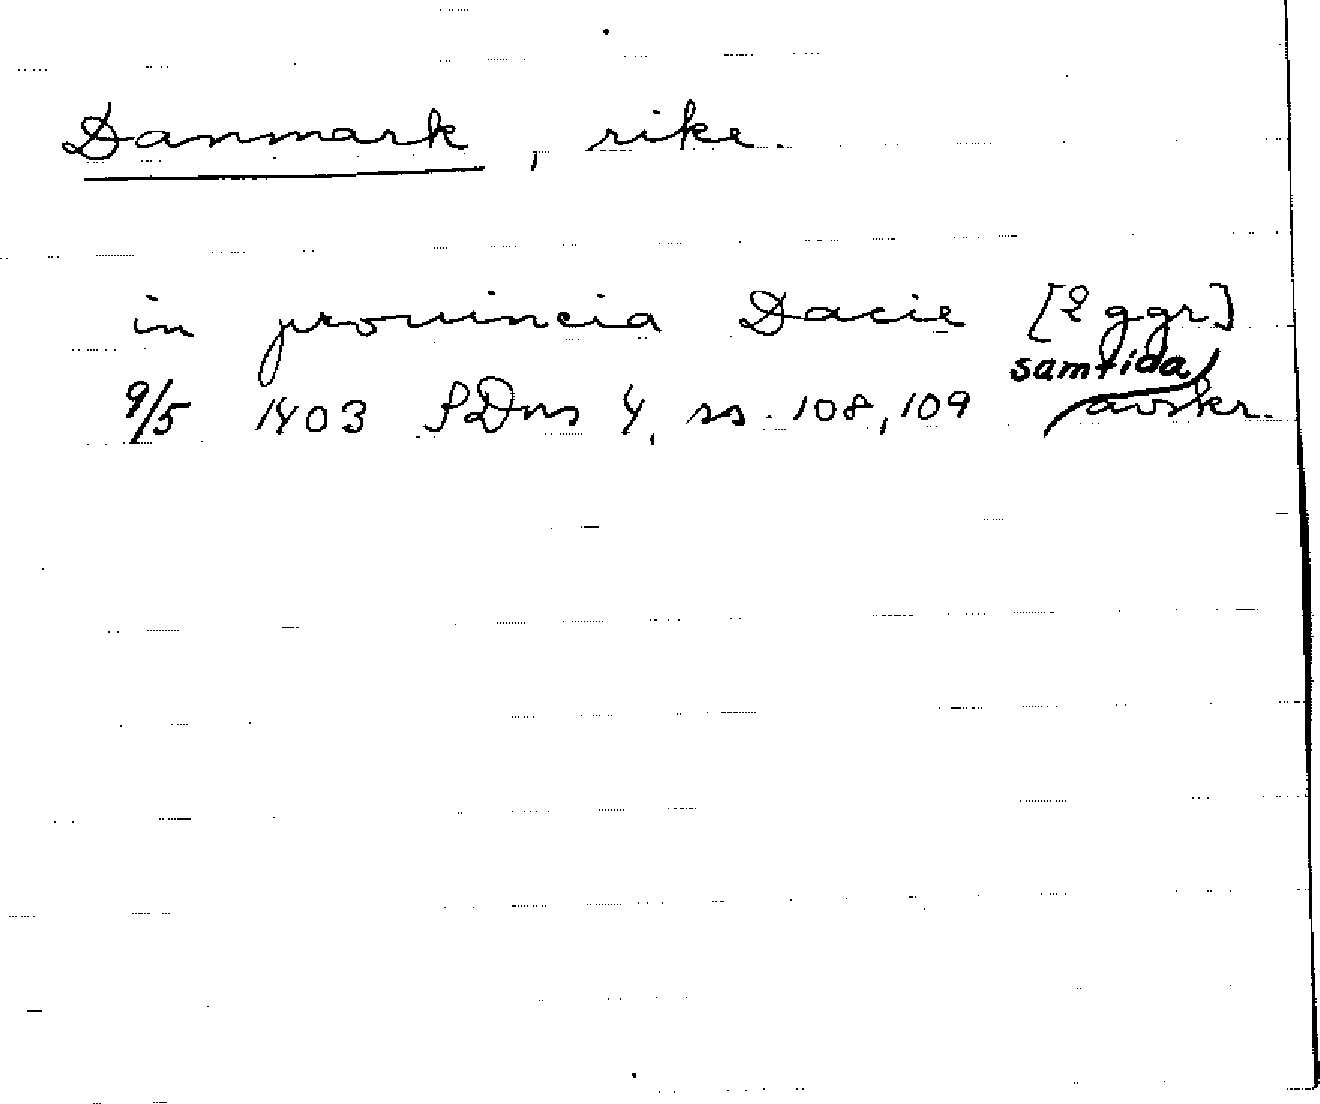 Danmark, rike.
in prouincia Dacie [2 ggr]
samtida
9/5 1403 SDns 4, ss. 108, 109 avskr.